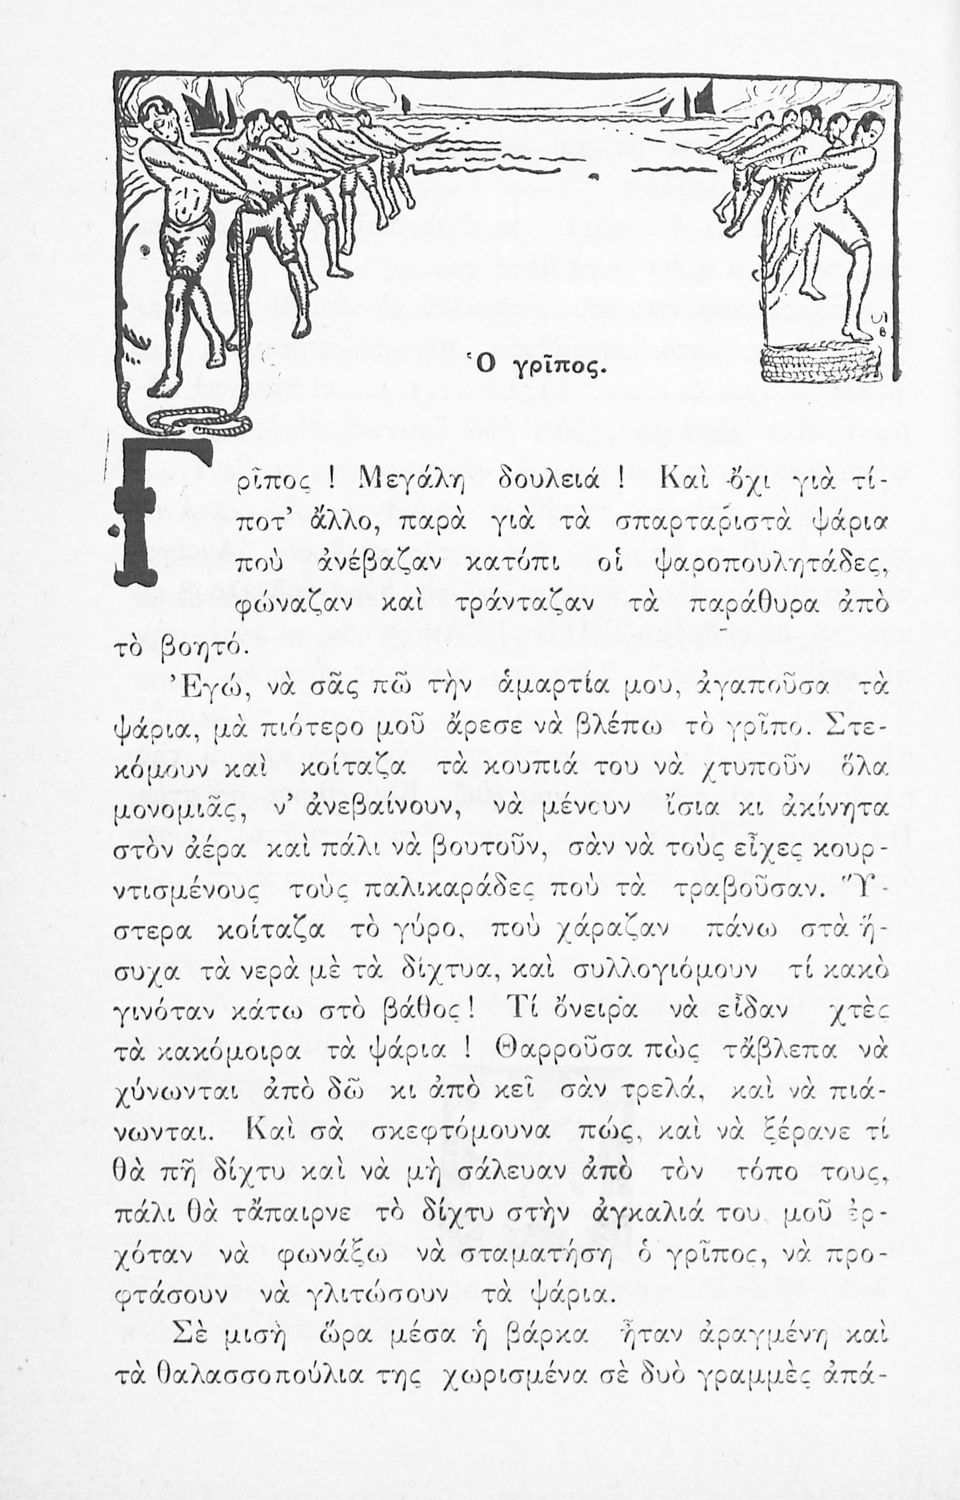 Ὁ γρῖπος.
Γρῖπος ! Μεγάλη δουλειά ! Καὶ ὄχι γιὰ τί-
ποτ’ ἄλλο, παρὰ γιὰ τὰ σπαρταριστὰ ψάρια
ποὺ ἀνέβαζαν κατόπι οἱ ψαροπουλητάδες,
φώναζαν καὶ τράνταζαν τὰ παράθυρα ἀπὸ
τὸ βοητό.
Ἐγώ, νὰ σᾶς πῶ τὴν ἁμαρτία μου, ἀγαποῦσα τὰ
ψάρια, μὰ πιότερο μοῦ ἄρεσε νὰ βλέπω τὸ γρῖπο. Στε-
κόμουν καὶ κοίταζα τὰ κουπιά του νὰ χτυποῦν ὅλα
μονομιᾶς, ν’ ἀνεβαίνουν, νὰ μένουν ἴσια κι ἀκίνητα
στὸν ἀέρα καὶ πάλι νὰ βουτοῦν, σὰν νὰ τοὺς εἶχες κουρ-
ντισμένους τοὺς παλικαράδες ποὺ τὰ τραβοῦσαν. Ὕ-
στερα κοίταζα τὸ γύρο, ποὺ χάραζαν πάνω στὰ ἥ-
συχα τὰ νερὰ μὲ τὰ δίχτυα, καὶ συλλογιόμουν τί κακὸ
γινόταν κάτω στὸ βάθος! Τί ὄνειρα νὰ εἶδαν χτὲς
τὰ κακόμοιρα τὰ ψάρια ! Θαρροῦσα πὼς τἄβλεπα νὰ
χύνωνται ἀπὸ δῶ κι ἀπὸ κεῖ σὰν τρελά, καὶ νὰ πιά-
νωνται. Καὶ σὰ σκεφτόμουνα πώς, καὶ νὰ ξέρανε τί
θὰ πῆ δίχτυ καὶ νὰ μὴ σάλευαν ἀπὸ τὸν τόπο τους,
πάλι θὰ τἄπαιρνε τὸ δίχτυ στὴν ἀγκαλιά του, μοῦ ἐρ-
χόταν νὰ φωνάξω νὰ σταματήση ὁ γρῖπος, νὰ προ-
φτάσουν νὰ γλιτώσουν τὰ ψάρια.
Σὲ μισὴ ὥρα μέσα ἡ βάρκα ἦταν ἀραγμένη καὶ
τὰ θαλασσοπούλια της χωρισμένα σὲ δυὸ γραμμὲς ἀπά-